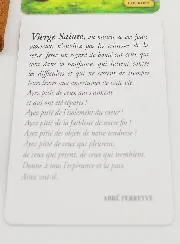 Vierge Sainte, au milieu de vos jours
glorieux, n'oubliez pas les tristesses de la
terre. Jetez un regard de bonté sur ceux qui
sont dans la souffrance, qui luttent contre
les difficultés et qui ne cessent de tremper
leurs lèvres aux amertumes de cette vie.
Ayez pitié de ceux qui s'aiment
et qui ont été séparés !
Ayez pitié de l'isolement du cœur !
Ayez pitié de la faiblesse de notre foi !
Ayez pitié des objets de notre tendresse !
Ayez pitié de ceux qui pleurent,
de ceux qui prient, de ceux qui tremblent.
Donnez à tous l'espérance et la paix.
Ainsi soit-il.
ABBÉ PERREYVE